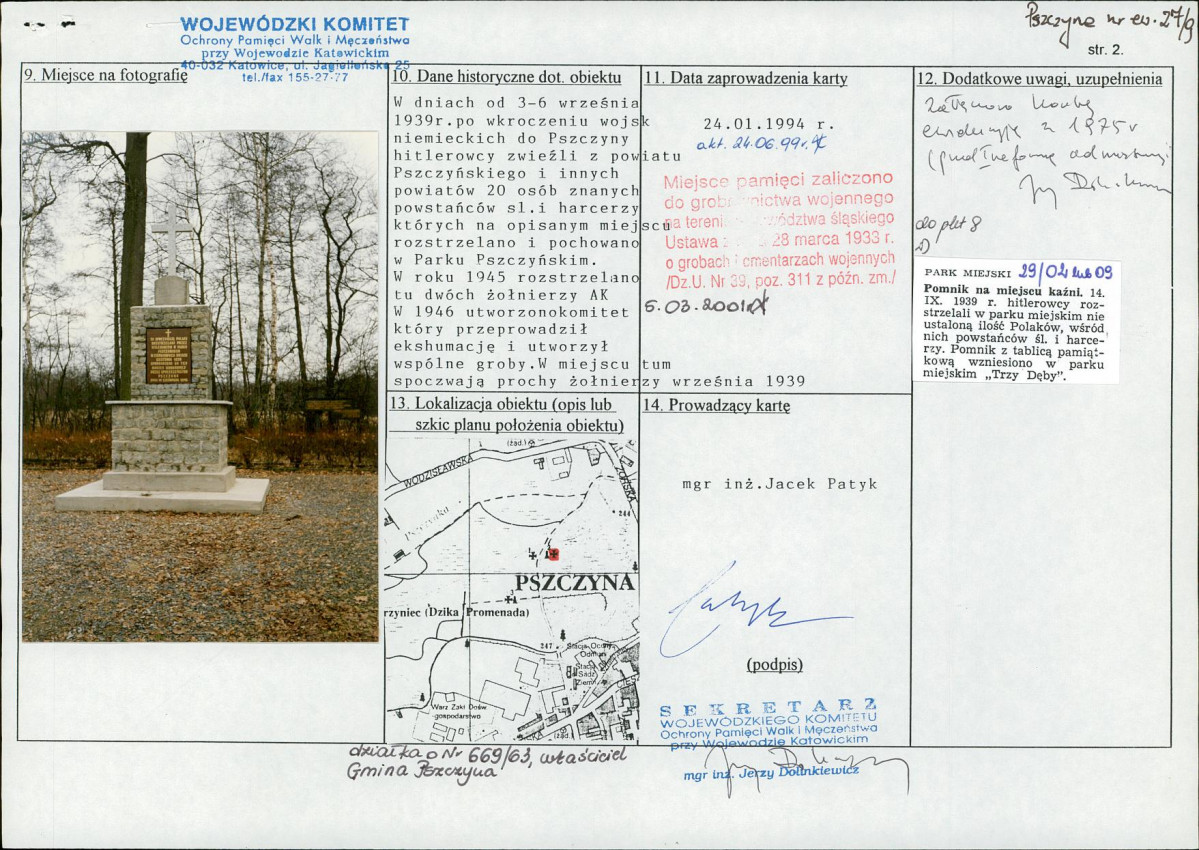 WOJEWÓDZKI KOMITET
Ochrony Pamięci Walk i Męczeństwa
przy Wojewodzie Katowickim
40-032 Katowice, ul. Jagiellońska 25
tel./fax 155-27-77
Pszczyna nr ew. 27/9
str. 2.
9. Miejsce na fotografię
10. Dane historyczne dot. obiektu
W dniach od 3-6 września
1939r.po wkroczeniu wojsk
niemieckich do Pszczyny
hitlerowcy zwieźli z powiatu
Pszczyńskiego i innych
powiatów 20 osób znanych
powstańców sl.i harcerzy
których na opisanym miejscu
rozstrzelano i pochowano
w Parku Pszczyńskim.
W roku 1945 rozstrzelano
tu dwóch żołnierzy AK
W 1946 utworzonokomitet
który przeprowadził
ekshumację i utworzył
wspólne groby.W miejscu tum
spoczwają prochy żołnierzy września 1939
11. Data zaprowadzenia karty
24.01.1994 r.
akt. 24.06.99r.
Miejsce pamięci zaliczono
do grobownictwa wojennego
na terenie województwa śląskiego
Ustawa z 28 marca 1933 r.
o grobach i cmentarzach wojennych
/Dz.U. Nr 39, poz. 311 z późn. zm./
5.03.2001r
12. Dodatkowe uwagi, uzupełnienia
z 1975r
do pkt 8
PARK MIEJSKI 29/02 lub 09
Pomnik na miejscu kaźni. 14.
IX. 1939 r. hitlerowcy roz-
strzelali w parku miejskim nie
ustaloną ilość Polaków, wśród
nich powstańców śl. i harce-
rzy. Pomnik z tablicą pamiąt-
kową wzniesiono w parku
miejskim „Trzy Dęby”.
13. Lokalizacja obiektu (opis lub
szkic planu położenia obiektu)
(żad.)
WODZISŁAWSKA
Pszczynka
244
PSZCZYNA
rzyniec (Dzika Promenada)
247
Stacja Oceny
Odmian
Stacja
Sadz.
Ziemn.
Warz Zakł Dośw
gospodarstwo
działka o Nr 669/63, właściciel
Gmina Pszczyna
14. Prowadzący kartę
mgr inż.Jacek Patyk
(podpis)
SEKRETARZ
WOJEWÓDZKIEGO KOMITETU
Ochrony Pamięci Walk i Męczeństwa
przy Wojewodzie Katowickim
mgr inż. Jerzy Dolinkiewicz